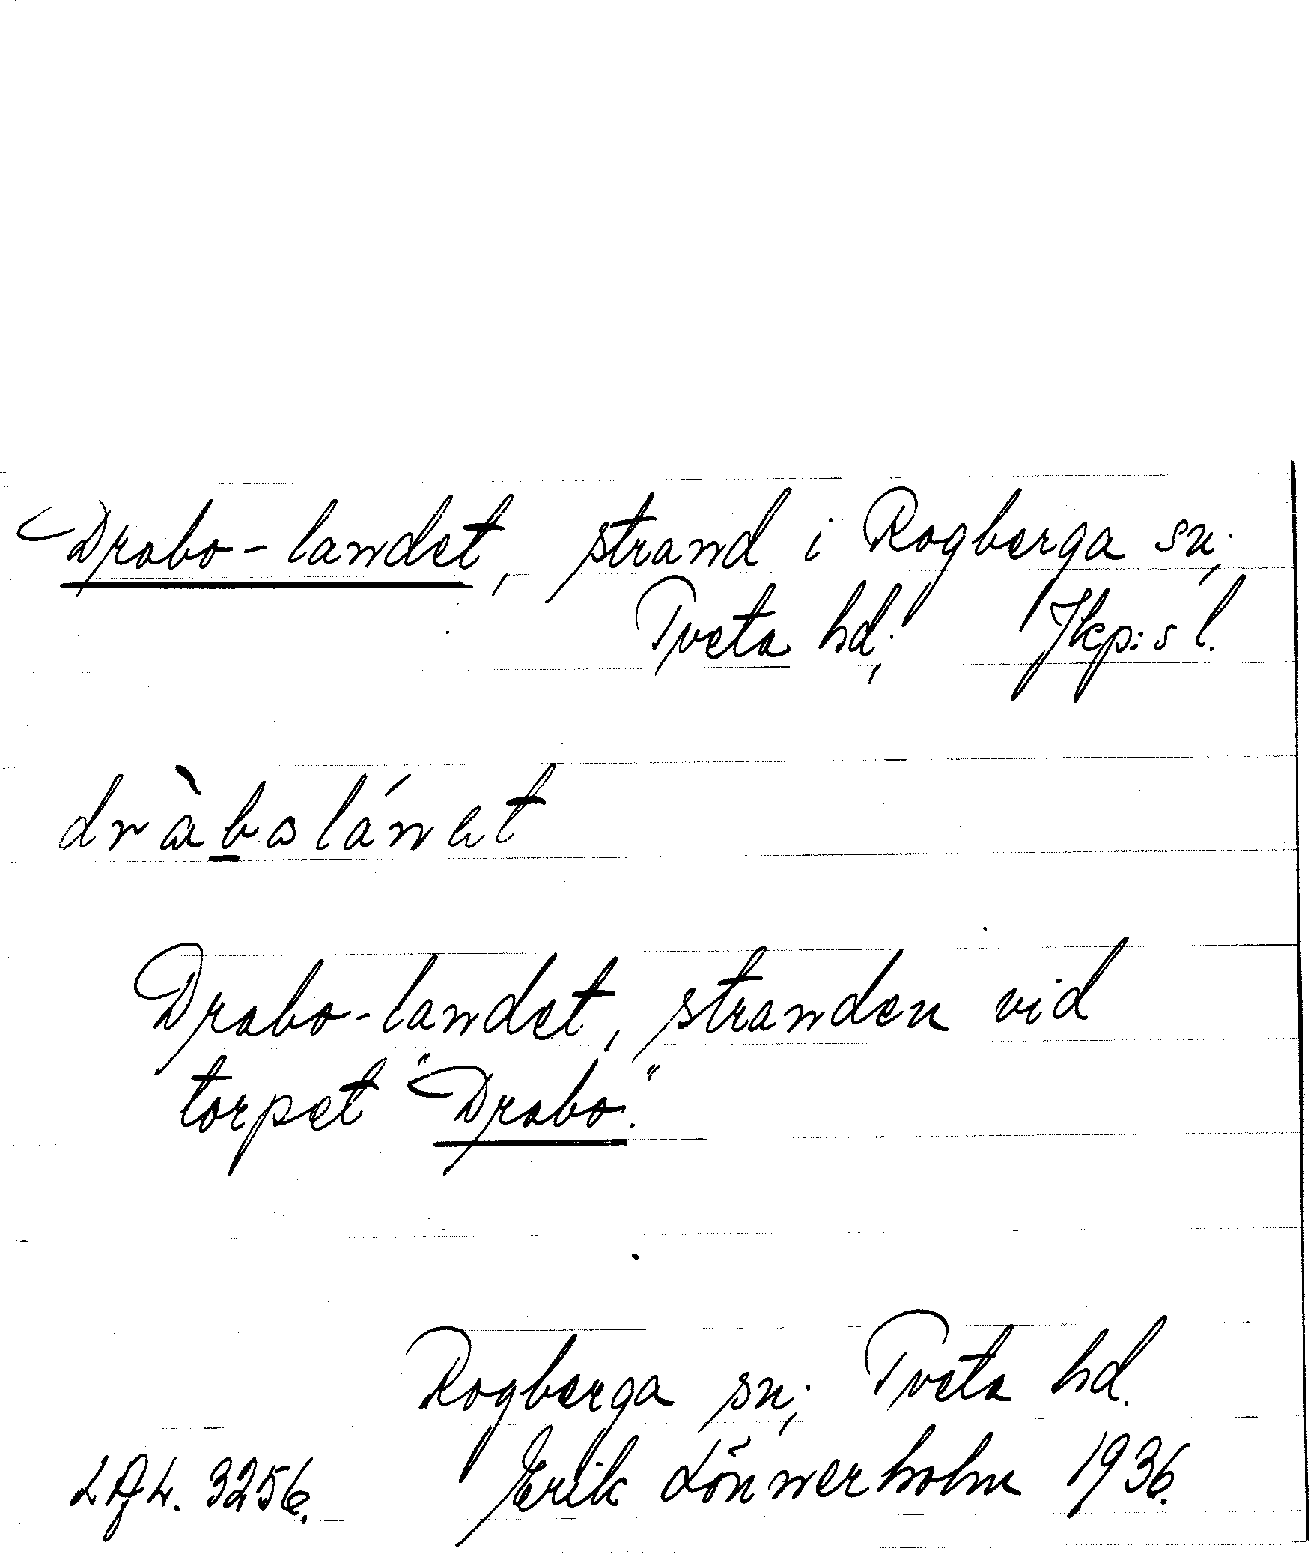 Drabo-landet, strand i Rogberga sn;
Tveta hd; Jkp:s l.
dràbolánet
Drabo-landet, stranden vid
torpet "Drabo."
Rogberga sn; Tveta hd.
LAL. 3256. Erik Lönnerholm 1936.